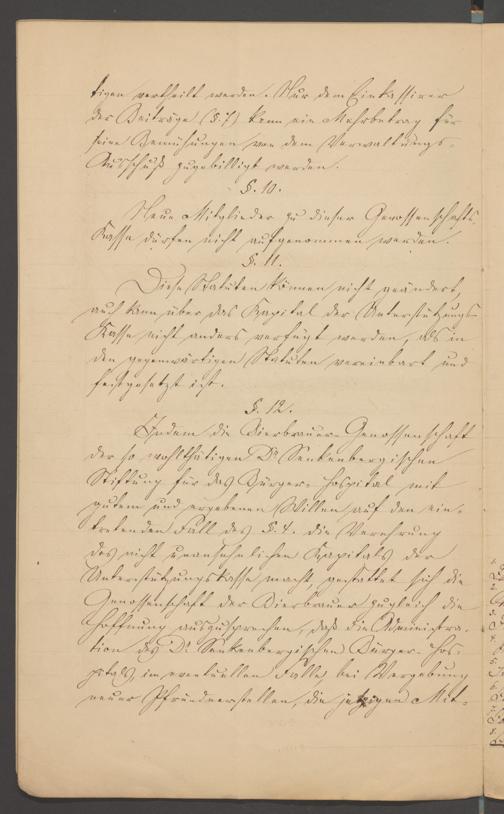 tigen vertheilt werden. Nur dem Einkassirer
der Beiträge (§.7) kann ein Mehrbetrag für
seine Bemühungen von dem Verwaltungs-
Ausschuß zugebilligt werden.
§. 10.
Neue Mitglieder zu dieser Genossenschafts-
Kasse dürfen nicht aufgenommen werden.
§. 11.
Diese Statuten können nicht geändert,
auch kann über das Kapital der Unterstützungs-
Kasse nicht anders verfügt werden, als in
den gegenwärtigen Statuten vereinbart und
festgesetzt ist.
§. 12.
Indem die Bierbrauer-Genossenschaft
der so wohlthätigen Dr. Senkenbergischen
Stiftung für das Bürger-Hospital mit
gutem und ergebenen Willen auf den ein-
tretenden Fall des §. 4. die Verehrung
des nicht unansehnlichen Kapitals der
Unterstützungskasse macht, gestattet sich die
Genossenschaft der Bierbrauer zugleich die
Hoffnung auszusprechen, daß die Administra-
tion des Dr. Senkenbergischen Bürger-Hos-
pitals, im eventuellen Falle, bei Vergebung
neuer Pfründnerstellen, die jetzigen Mit-